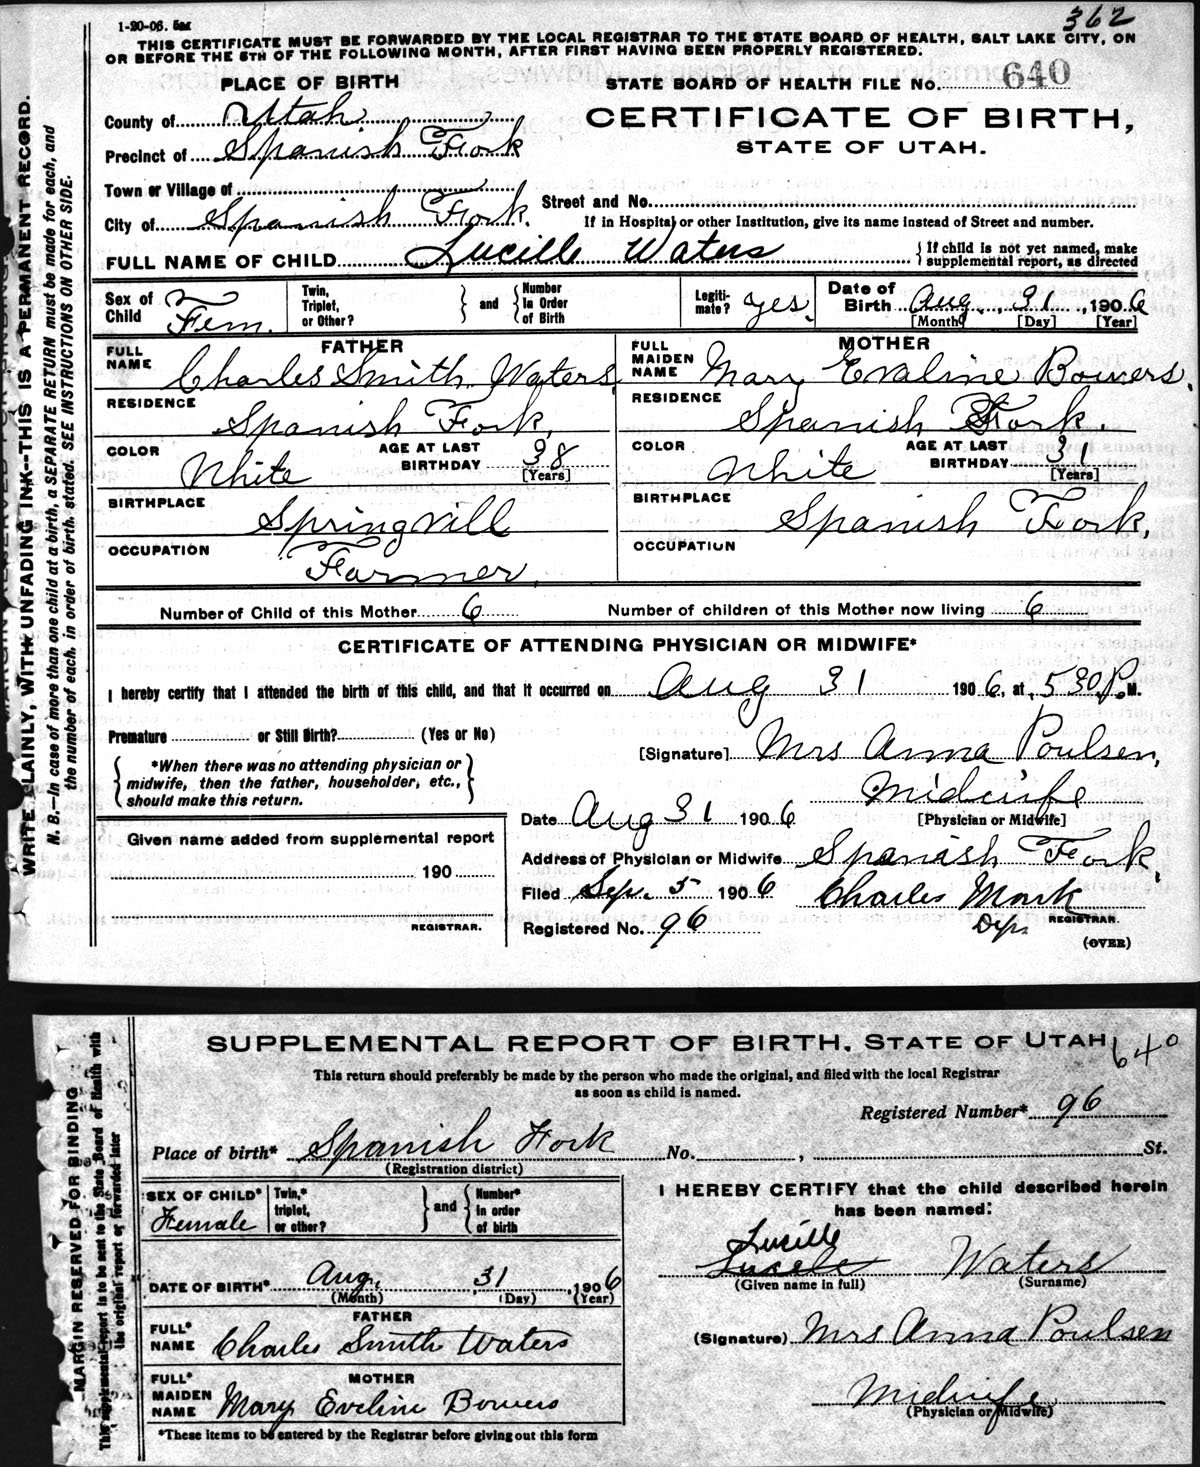 362
1-20-06. 5m
THIS CERTIFICATE MUST BE FORWARDED BY THE LOCAL REGISTRAR TO THE STATE BOARD OF HEALTH, SALT LAKE CITY, ON
OR BEFORE THE 5TH OF THE FOLLOWING MONTH, AFTER FIRST HAVING BEEN PROPERLY REGISTERED.
PLACE OF BIRTH
STATE BOARD OF HEALTH FILE No. 640
County of Utah
CERTIFICATE OF BIRTH,
Precinct of Spanish Fork
STATE OF UTAH.
Town or Village of
Street and No.
City of Spanish Fork.
If in Hospital or other Institution, give its name instead of Street and number.
FULL NAME OF CHILD Lucille Waters
{If child is not yet named, make
supplemental report, as directed
Sex of Child Fem.
Twin, Triplet, or Other? } and { Number in Order of Birth
Legiti-mate? yes.
Date of Birth Aug. 31, 1906
[Month] [Day] [Year]
FATHER
FULL NAME Charles Smith Waters
RESIDENCE Spanish Fork,
COLOR White
AGE AT LAST BIRTHDAY 38
[Years]
BIRTHPLACE Springvill
OCCUPATION Farmer,
MOTHER
FULL MAIDEN NAME Mary Evaline Bowers,
RESIDENCE Spanish Fork.
COLOR White
AGE AT LAST BIRTHDAY 31
[Years]
BIRTHPLACE Spanish Fork,
OCCUPATION
Number of Child of this Mother 6
Number of children of this Mother now living 6
CERTIFICATE OF ATTENDING PHYSICIAN OR MIDWIFE*
I hereby certify that I attended the birth of this child, and that it occurred on Aug 31 1906, at 530 P.M.
Premature or Still Birth? (Yes or No)
[Signature] Mrs Anna Poulsen,
{ *When there was no attending physician or
midwife, then the father, householder, etc.,
should make this return. }
Midwife
[Physician or Midwife]
Date Aug 31 1906
Given name added from supplemental report
190
REGISTRAR.
Address of Physician or Midwife Spanish Fork,
Filed Sep. 5 1906
Charles Monk
Dep. REGISTRAR.
Registered No. 96
(OVER)
WRITE PLAINLY, WITH UNFADING INK--THIS IS A PERMANENT RECORD.
N. B.—In case of more than one child at a birth, a SEPARATE RETURN must be made for each, and
the number of each, in order of birth, stated. SEE INSTRUCTIONS ON OTHER SIDE.
SUPPLEMENTAL REPORT OF BIRTH, STATE OF UTAH 640
This return should preferably be made by the person who made the original, and filed with the local Registrar
as soon as child is named.
Registered Number* 96
Place of birth* Spanish Fork No. , St.
(Registration district)
SEX OF CHILD* Female
Twin,* triplet, or other? } and { Number* in order of birth
DATE OF BIRTH* Aug. 31, 1906
(Month) (Day) (Year)
FATHER
FULL* NAME Charles Smith Waters
MOTHER
FULL* MAIDEN NAME Mary Eveline Bowers
*These items to be entered by the Registrar before giving out this form
I HEREBY CERTIFY that the child described herein
has been named:
Lucille
Lucele Waters
(Given name in full) (Surname)
(Signature) Mrs Anna Poulsen
Midwife
(Physician or Midwife)
MARGIN RESERVED FOR BINDING
This supplemental report is to be sent to the State Board of Health with
the original report or forwarded later